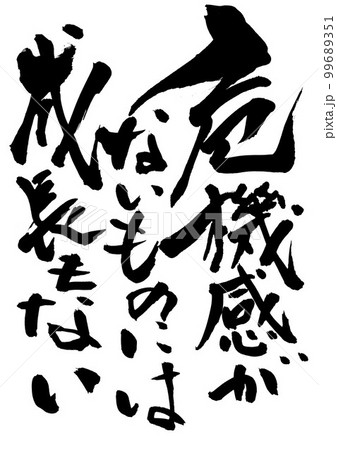 危機感が
ないものには
成長もない
pixta.jp - 99689351
PIXTA